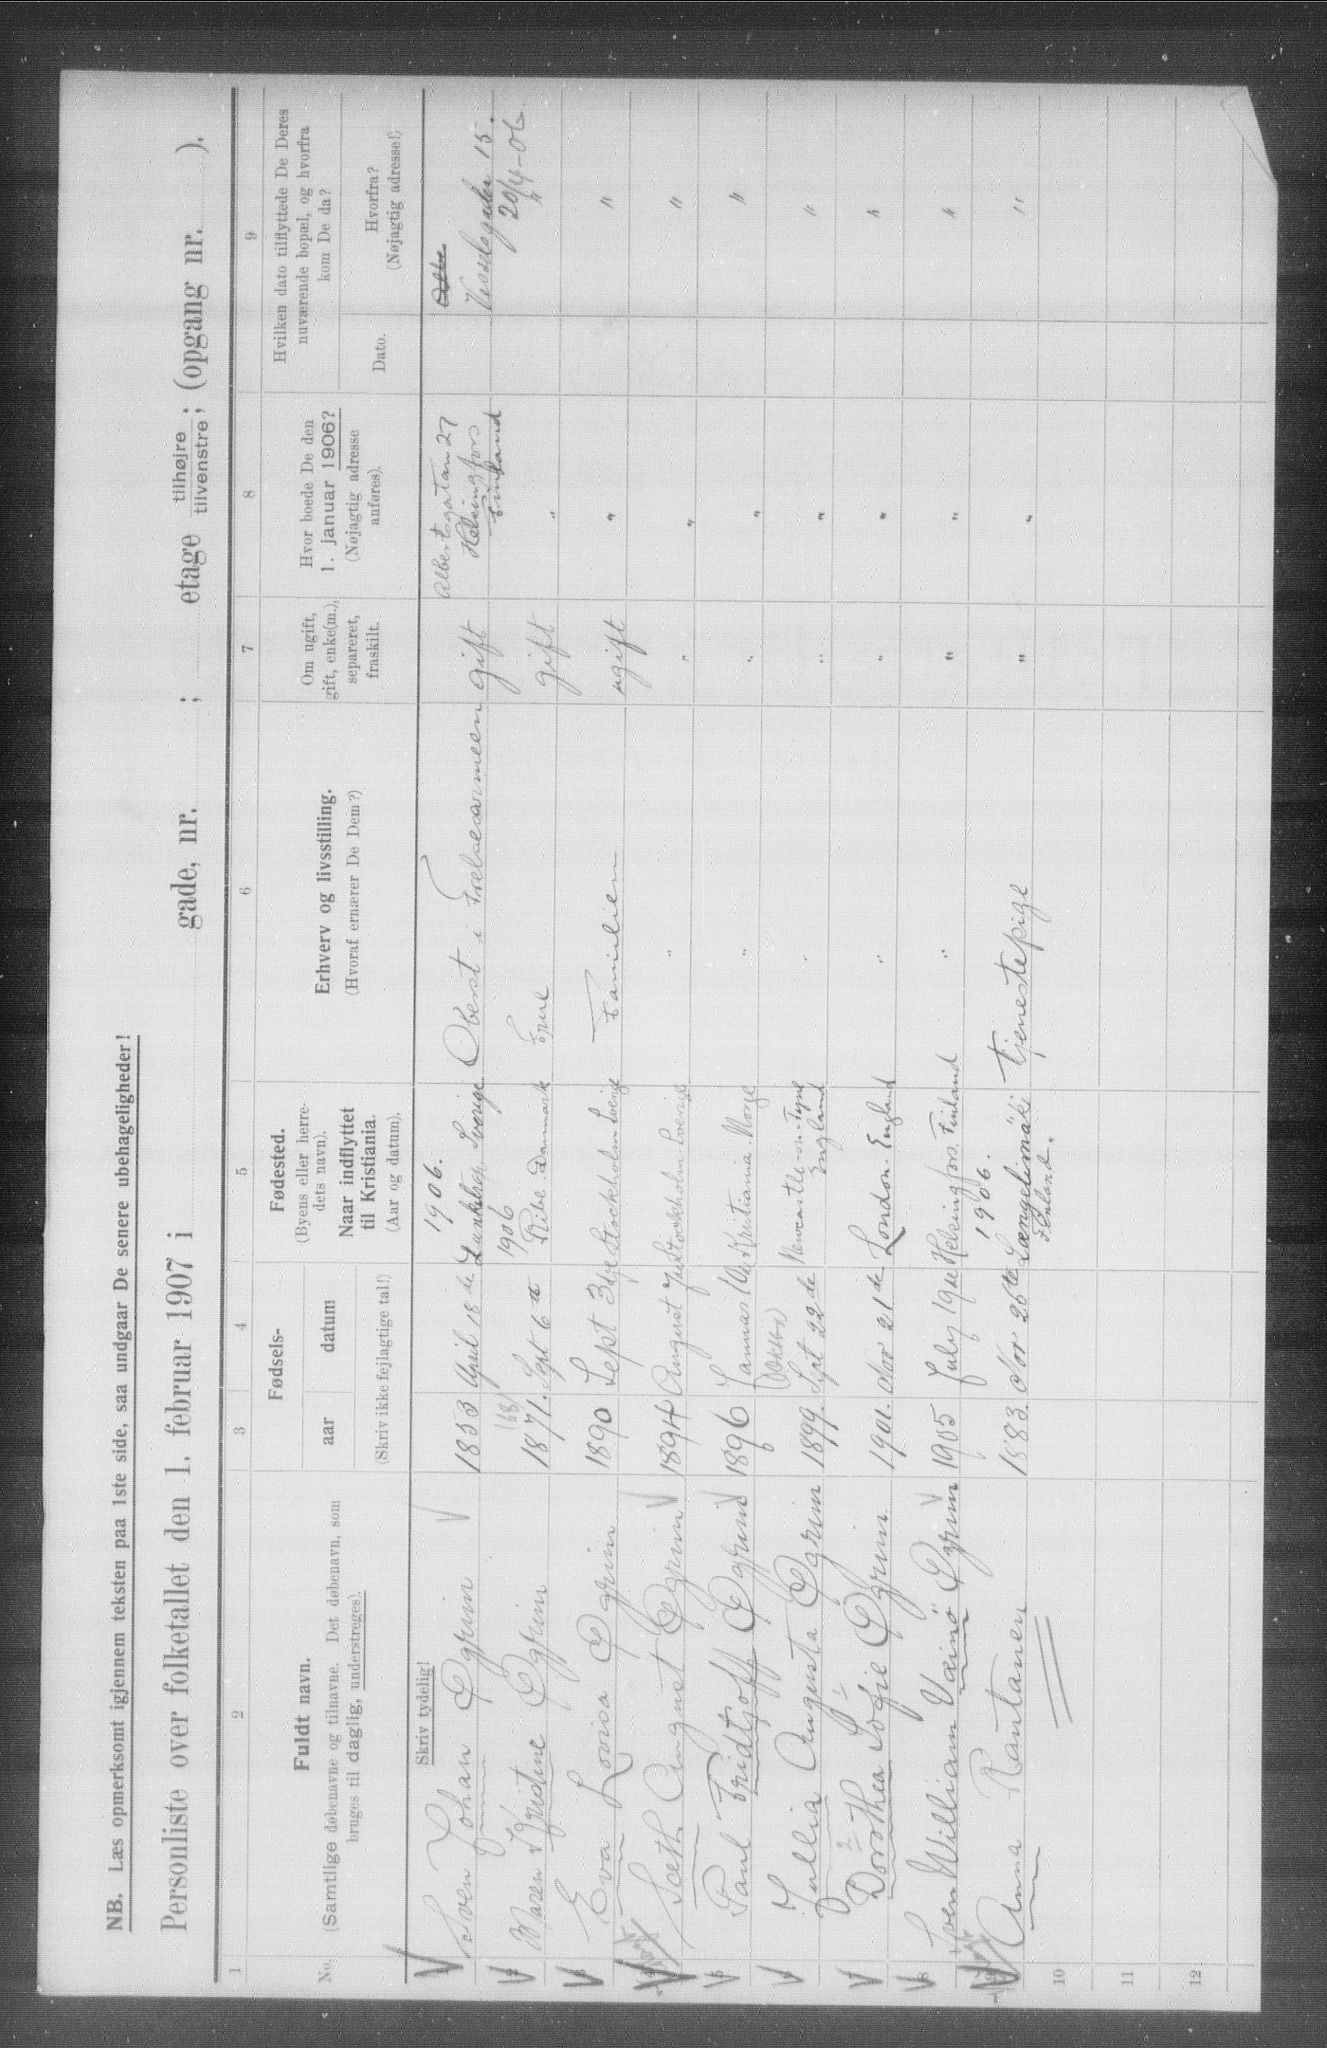 NB. Læs opmerksomt igjennem teksten paa 1ste side, saa undgaar De senere ubehageligheder!
Personliste over folketallet den 1. februar 1907 i gade, nr. ; etage tilhøjre tilvenstre; (opgang nr. ).
1 2 3 4 5 6 7 8 9
No.
Fuldt navn.
(Samtlige døbenavne og tilnavne. Det døbenavn, som
bruges til daglig, understreges).
Fødsels-
aar datum
(Skriv ikke fejlagtige tal!)
Fødested.
(Byens eller herre-
dets navn).
Naar indflyttet
til Kristiania.
(Aar og datum).
Erhverv og livsstilling.
(Hvoraf ernærer De Dem?)
Om ugift,
gift, enke(m.),
separeret,
fraskilt.
Hvor boede De den
1. januar 1906?
(Nøjagtig adresse
anføres).
Hvilken dato tilflyttede De Deres
nuværende bopæl, og hvorfra
kom De da?
Dato.
Hvorfra?
(Nøjagtig adresse!)
Skriv tydelig!
1906. Albertsgatan 27
Sven Johan Ögrim 1853 April 18de Sverige Oberst i Frelsesarmeen gift Helsingfors Finland 15. 20/4-06
1906
2 Maren Kristine Ögrim 1871. Sept 6te Ribe Danmark Frue gift " "
3 Eva Lovisa Ögrim 1890 Sept 3dje Stockholm Sverige Familien ugift " "
Seth August Ögrim 1894 August Stockholm Sverige " " " "
5 Paul Fridtjoff Ögrim 1896 Kristiania Norge " " " "
Jullia Augusta Ögrim 1899. Sept 22de Newcastle-on-Tyne England " " " "
7 Dorothea Sofie Ögrim 1901. Nov 21de London England " " " "
8 Sven William Väinö Ögrim 1905 July 19de Helsingfors Finland " " " "
1906.
Anna Rantanen 1883. Nov 26te Længelimäki Finland. Tjenestepige " " "
10
11
12